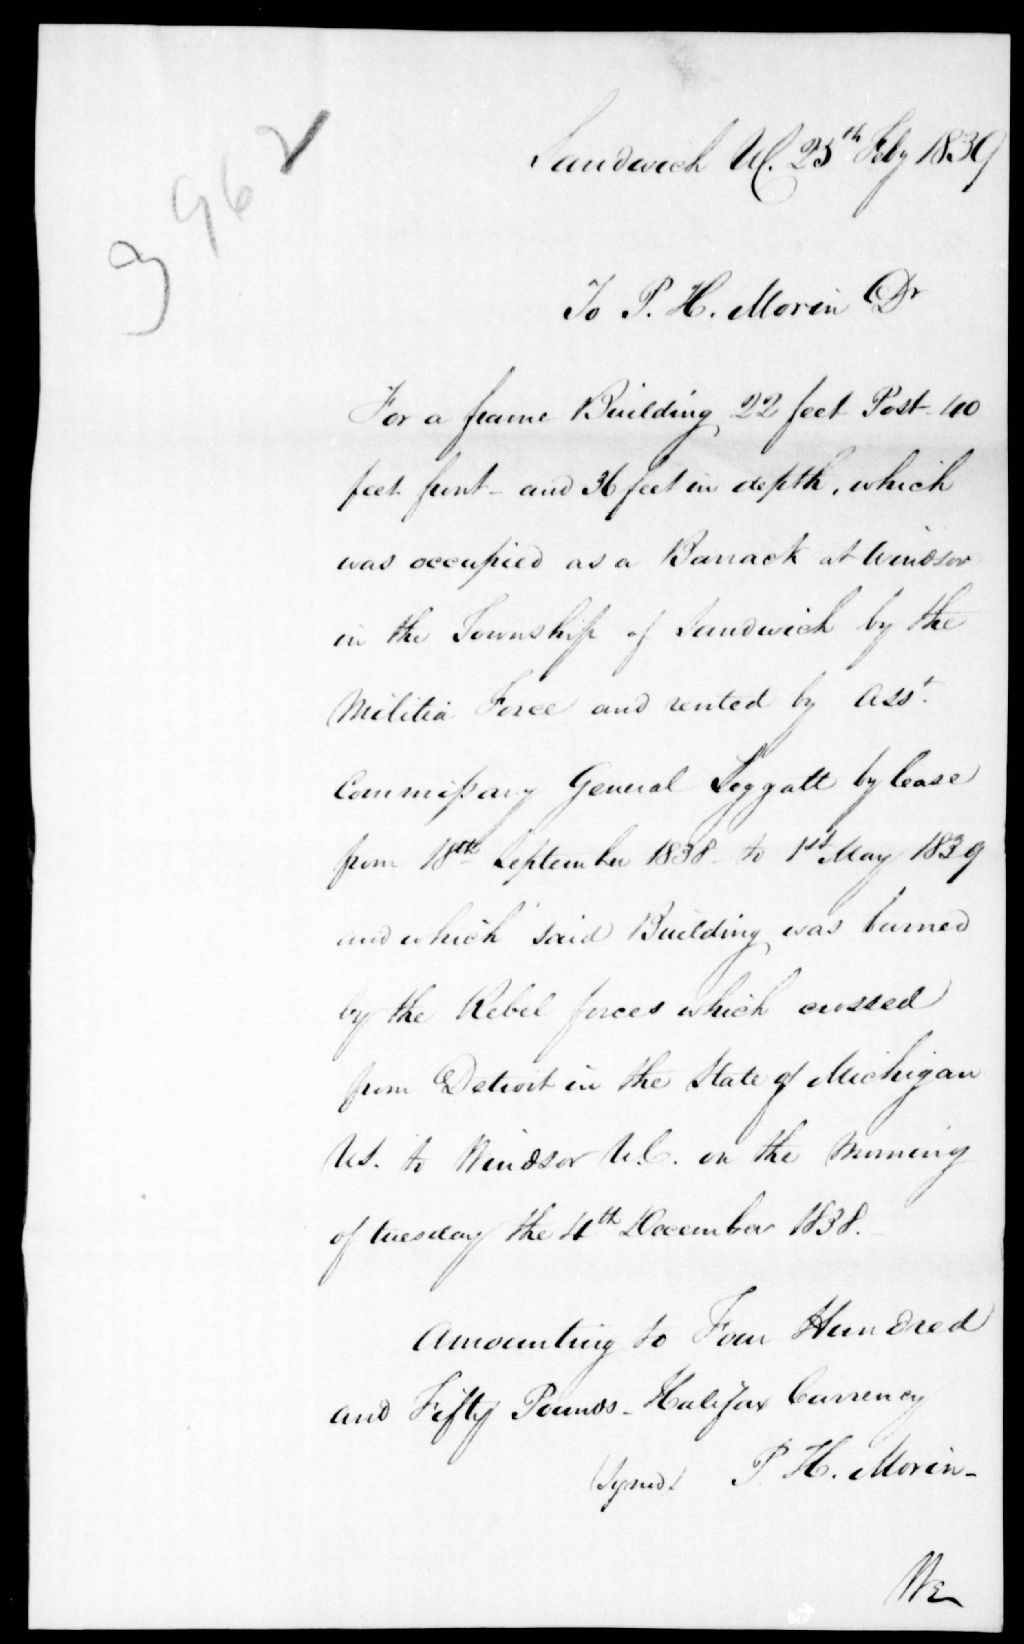 3962
Sandwich U.C. 25th Feby 1839
To P. H. Morin Dr
For a frame Building 22 feet Post - 40
feet front - and 36 feet in depth, which
was occupied as a Barrack at Windsor
in the Township of Sandwich by the
Militia Force and rented by Asst.
Commissary General Leggatt by lease
from 18th September 1838 - to 1st May 1839
and which said Building was burned
by the Rebel forces which crossed
from Detroit in the State of Michigan
U.S. to Windsor U.C. on the morning
of tuesday the 4th December 1838.
Amounting to Four Hundred
and Fifty Pounds - Halifax Currency
(Signed) P. H. Morin -
We